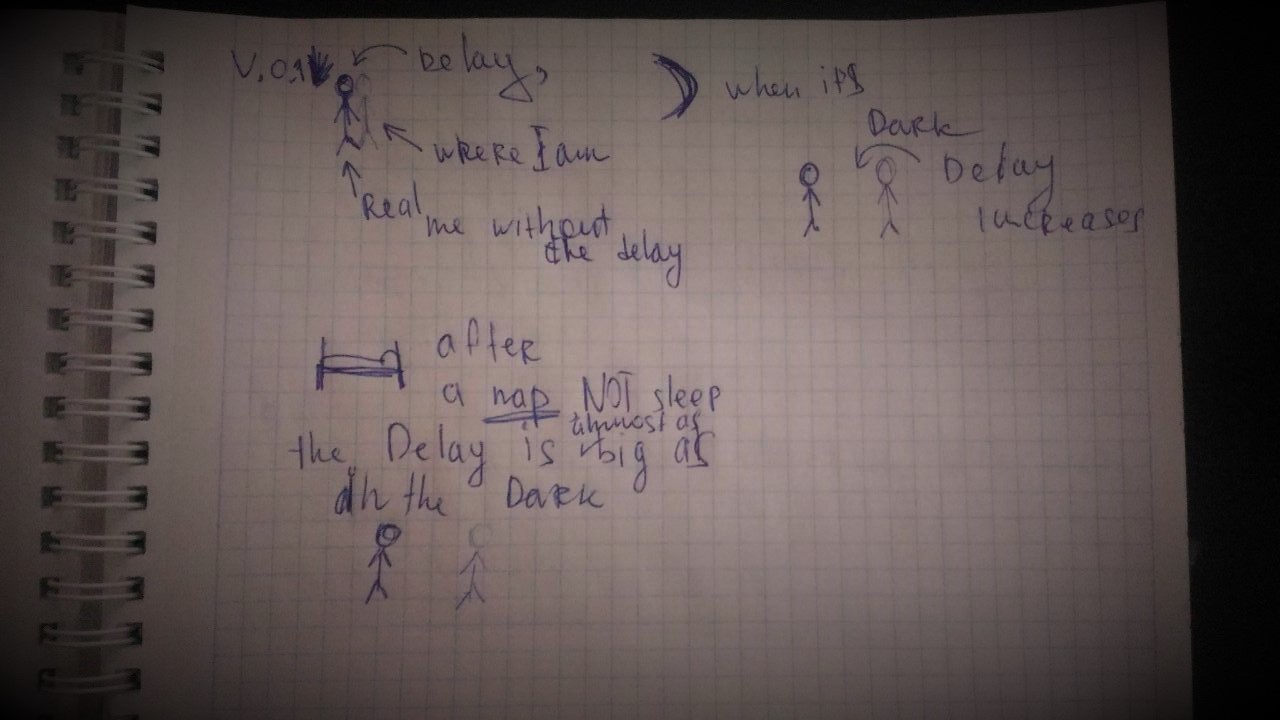 V.0.1
Delay,
where I am
Real me without
the delay
when it's
Dark
Delay
increases
after
a nap NOT sleep
almost as
the Delay is big as
in the Dark